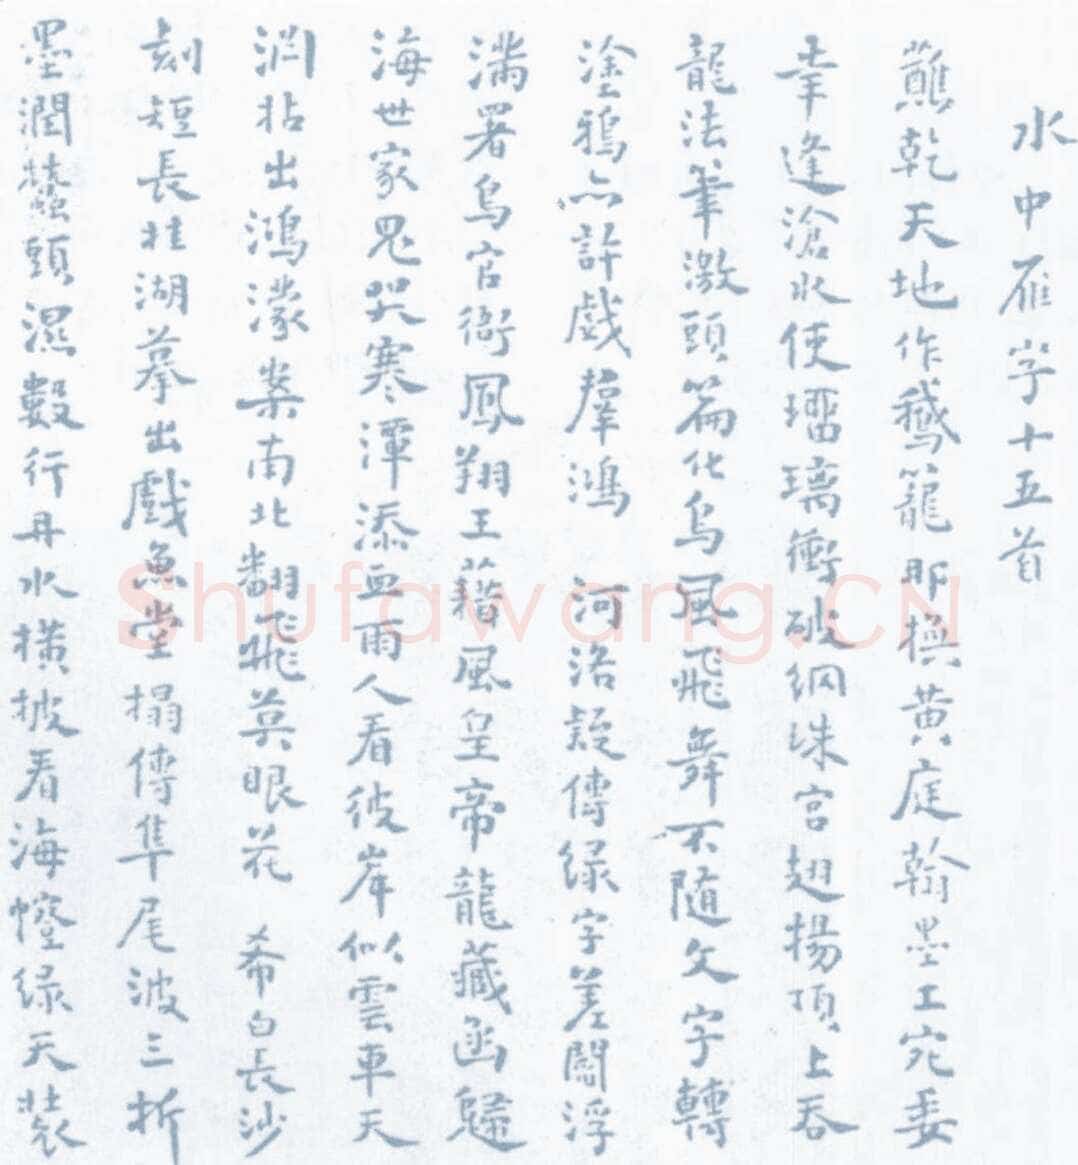 水中雁字十五首
蘸乾天地作鵝籠那換黃庭翰墨工宛委
幸逢滄水使璢璃衝破網珠宮翅揚頂上吞
龍法筆激頭篇化鳥風飛舞不隨文字轉
塗鴉亦許戲羣鴻 河洛疑傳綠字差關浮
滿署鳥官銜鳳翔王藉風皇帝龍藏函歸
海世家鬼哭寒潭添血雨人看彼岸似雲車天
淵拈出鴻濛案南北翻飛莫眼花 希白長沙
刻短長杜湖摹出戲魚堂搨傳隼尾波三折
墨潤蠶頭濕數行丹水橫披看海幢綠天裝
Shufawang.CN